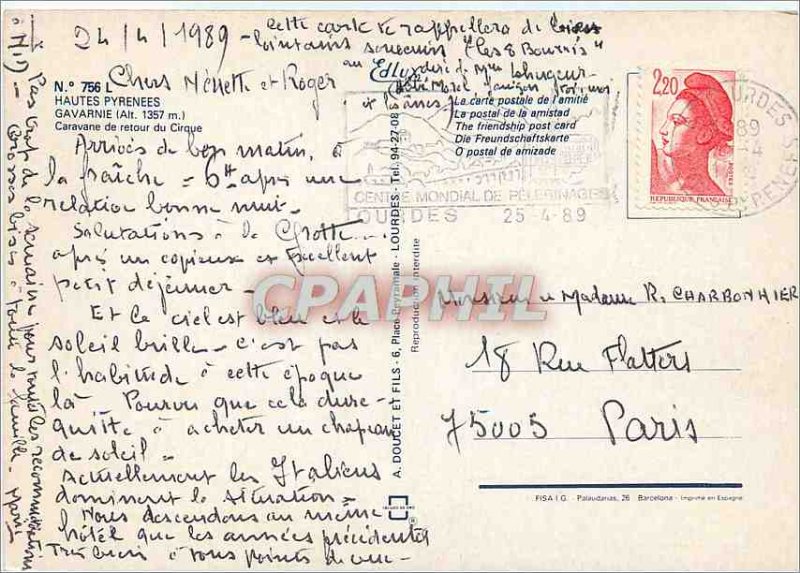 24/4/1989 - Cette carte te rappellera de
lointains souvenirs "Les 8 Bournis"
au
N.° 756 L
HAUTES PYRENEES
GAVARNIE (Alt. 1357 m.)
Caravane de retour du Cirque
Chers Ménette et Roger
La carte postale de l'amitié
La postal de la amistad
The friendship post card
Die Freundschaftskarte
O postal de amizade
Arrivés de bon matin, à
la fraîche = 6H après une
relation bonne nuit -
Salutations à la Grotte
après un copieux et excellent
petit déjeuner -
Et le ciel est bleu et le
soleil brille - c'est pas
l'habitude à cette époque
là. Pourvu que cela dure -
quitte à acheter un chapeau
de soleil -
Actuellement les Italiens
dominent la situation =
Nous descendons au même
hôtel que les années précédentes
Très bien à tous points de vue -
Pas trop de la semaine pour toutes les
Grosses bises à toute la famille - Marie
A. DOUCET ET FILS - 6, Place Peyramale - LOURDES - Tel. 94-27-08
Reproduction interdite
CENTRE MONDIAL DE PÈLERINAGES
LOURDES 25-4-89
2,20
POSTES
REPUBLIQUE FRANÇAISE
LOURDES
PYRENEES
Monsieur et Madame R. CHARBONNIER
18 Rue Flatters
75005 Paris
FISA I.G. - Palaudarias, 26 Barcelona - Imprimé en Espagne
CPAPHIL